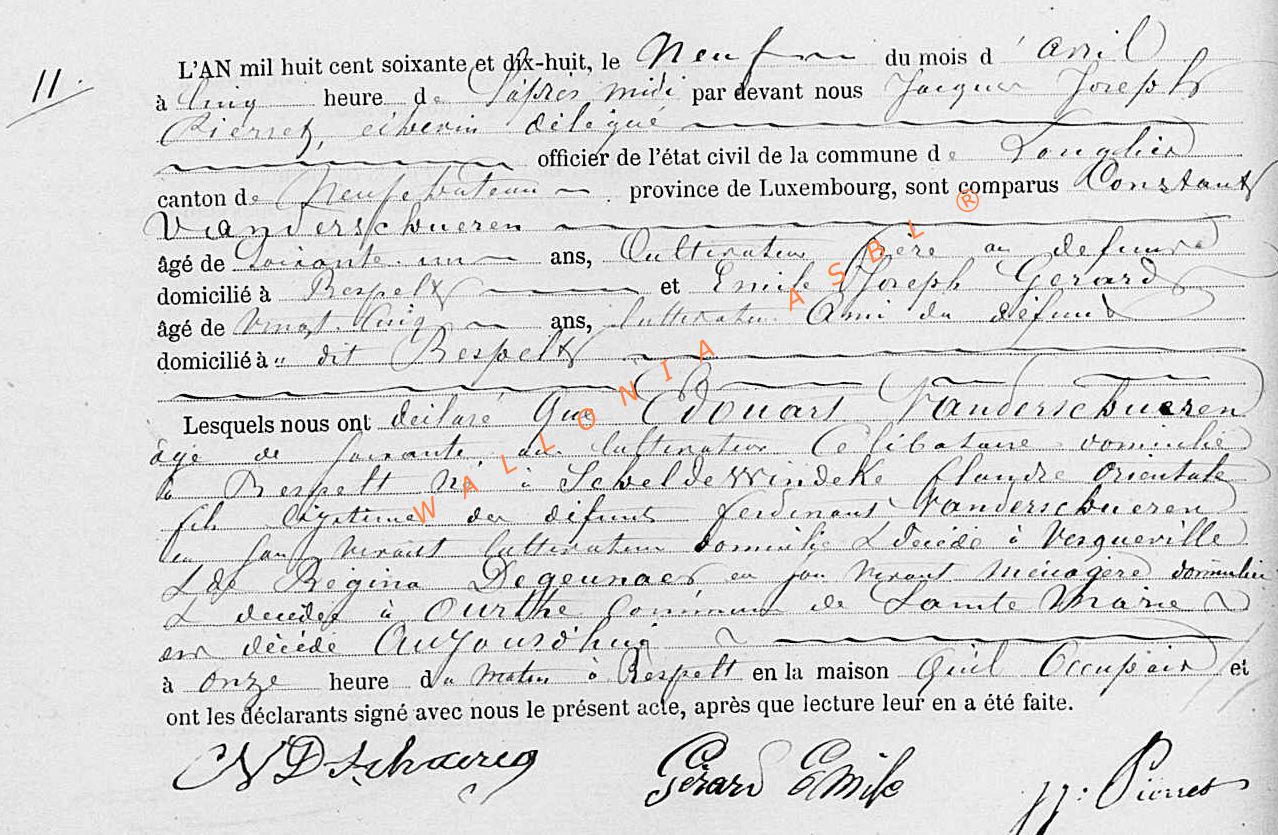 11.
L'AN mil huit cent soixante et dix-huit, le Neuf du mois d' avril
à Cinq heure de l'après midi par devant nous Jacques Joseph
Pierret, echevin délégué
officier de l'état civil de la commune de Longlier
canton de Neufchateau province de Luxembourg, sont comparus Constant
Vanderschueren
âgé de Soixante un ans, Cultivateur frère au defunt
domicilié à Respelt et Emile Joseph Gerard
âgé de Vingt Cinq ans, Cultivateur Ami du défunt
domicilié à " dit Respelt
Lesquels nous ont déclaré que Edouart Vanderschueren
âgé de soixante ans cultivateur Célibataire domicilié
à Respelt né à Scheldewindeke flandre orientale
fils légitime de défunt ferdinant Vanderschueren
en son vivant cultivateur domicilié & décédé à Vesqueville
& de Régina Degeunaer en son vivant ménagère domiciliée
& décédée à Ourthe Commune de Sainte Marie
est décédé Aujourd'hui
à onze heure du matin à Respelt en la maison qu'il Occupait et
ont les déclarants signé avec nous le présent acte, après que lecture leur en a été faite.
Gérard Emile
JJ: Pierret
WALLONIA ASBL ®